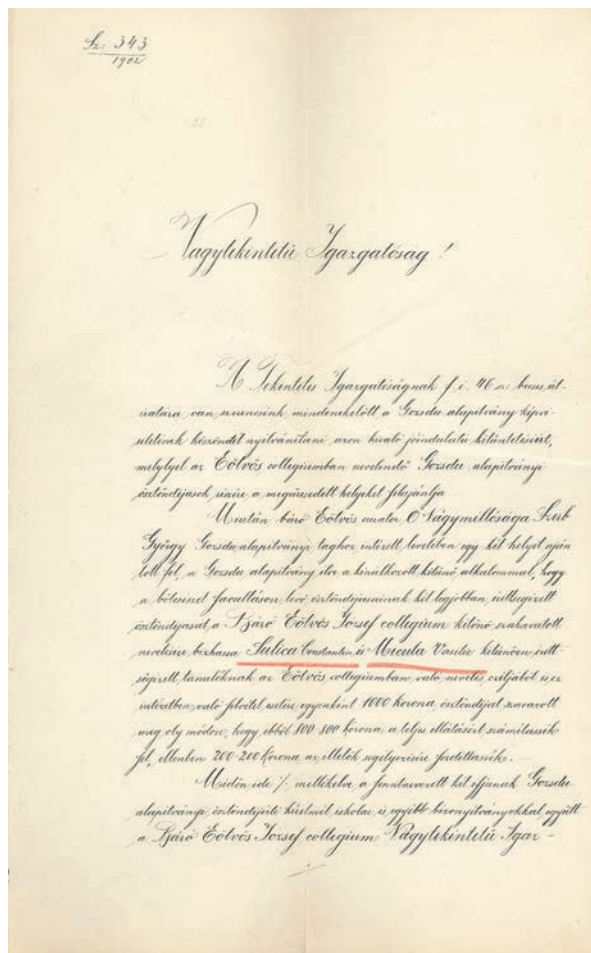 Sz: 343
1902
Nagytekintetű Igazgatóság!
A Tekintetes Igazgatóságnak f. é. 46 sz. becses át-
iratára van szerencsénk mindenekelőtt a Gozsdu alapitvány képvi-
seletének köszönetét nyilvánitani azon kiváló jóindulatu kitüntetésért,
melylyel az Eötvös collegiumban nevelendő Gozsdu alapitványi
ösztöndijasok részére a megüresedett helyeket felajánlja
Miután báró Eötvös curator Ő Nagyméltósága Szerb
György Gozsdu alapitványi taghoz intézett levelében egy két helyet aján
lott fel, a Gozsdu alapitvány élve a kinálkozott kitünő alkalommal, hogy
a bölcsészet facultáson levő ösztöndijasainak két legjobban érettségizett
ösztöndijasát a Báró Eötvös József collegium kitünő szakavatott
nevelésére bizhassa Sulica Constantin és Micula Vasilie kitünően érett-
ségizett tanulóknak az Eötvös collegiumban való nevelés czéljából s ez
intézetben való felvétel esetére egyenként 1000 korona ösztöndijat szavazott
meg oly módon, hogy ebből 800-800 korona a teljes ellátásért számitassék
fel, ellenben 200-200 korona az illetők segélyezésére fordittassék. —
Midőn ide /. mellékelve a fentnevezett két ifjunak Gozsdu
alapitványi ösztöndijért kérelmét iskolai s egyébb bizonyitványokkal együtt
a Báró Eötvös József collegium Nagytekintetű Igaz-